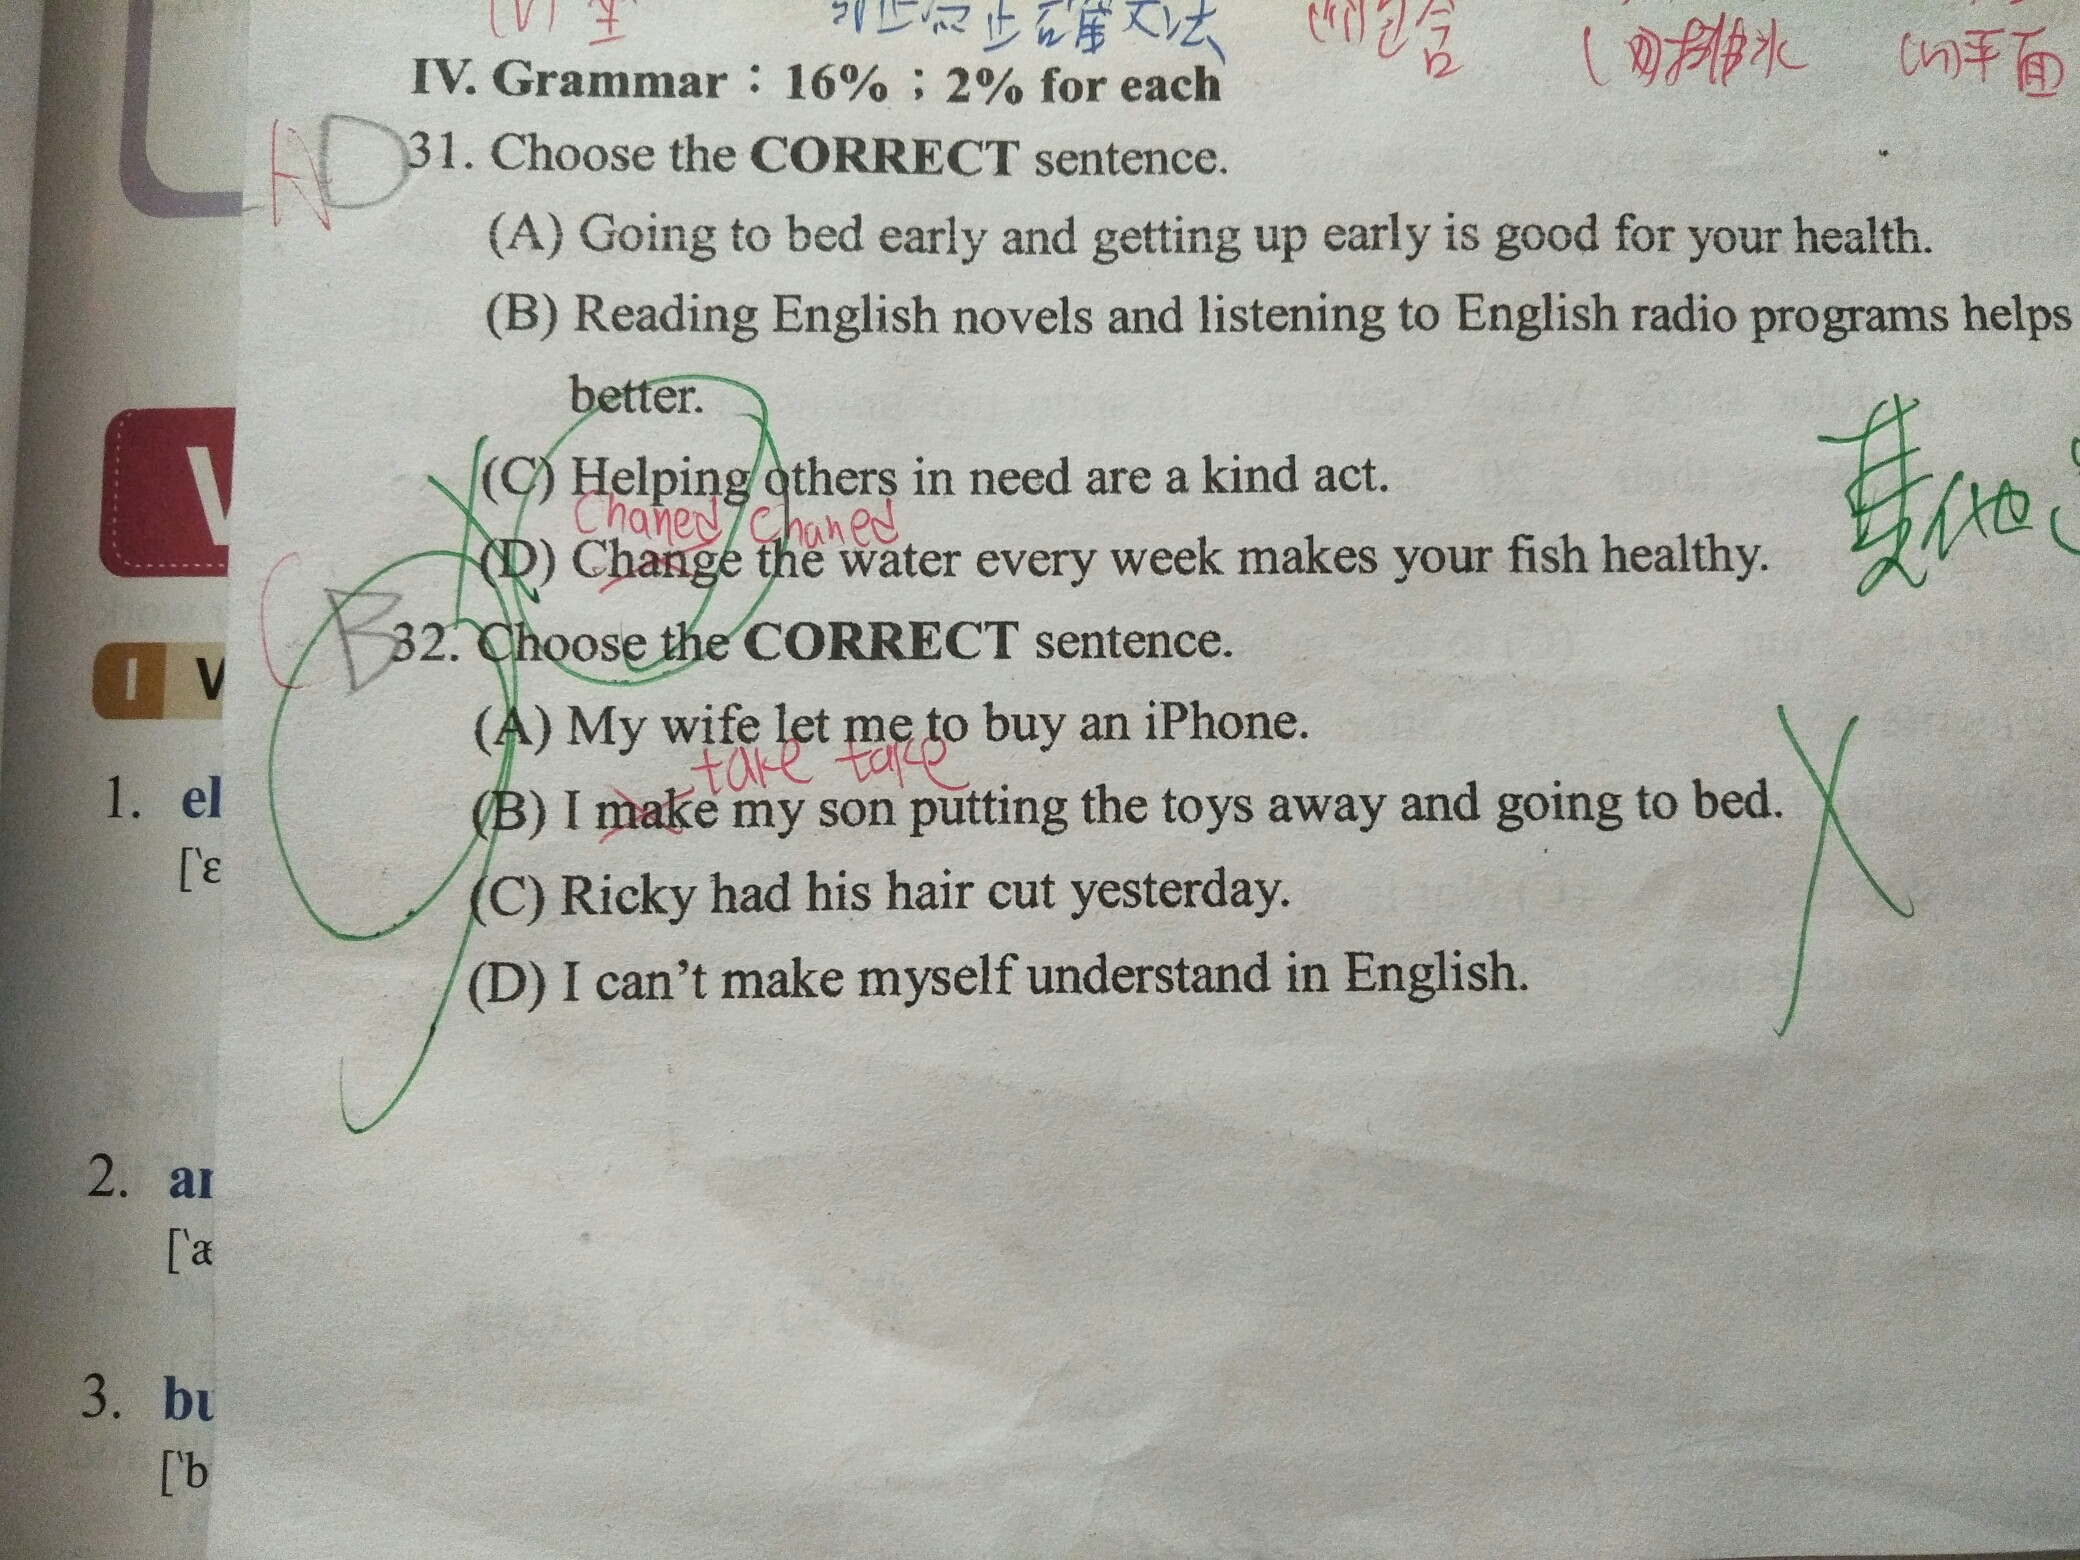 (V)至 正確文法 (11)包含 排水 平面
IV. Grammar：16%；2% for each
A D 31. Choose the CORRECT sentence.
(A) Going to bed early and getting up early is good for your health.
(B) Reading English novels and listening to English radio programs helps
better.
(C) Helping others in need are a kind act.
其他
Chaned Chaned
(D) Change the water every week makes your fish healthy.
C B 32. Choose the CORRECT sentence.
(A) My wife let me to buy an iPhone.
take take
(B) I make my son putting the toys away and going to bed.
(C) Ricky had his hair cut yesterday.
(D) I can't make myself understand in English.
V
I V
1. el
['ɛ
2. ar
['æ
3. bu
['b